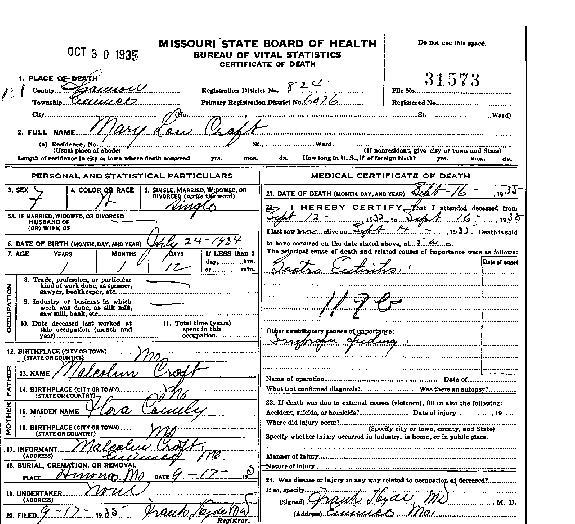 OCT 30 1935
MISSOURI STATE BOARD OF HEALTH
BUREAU OF VITAL STATISTICS
CERTIFICATE OF DEATH
Do not use this space.
31573
1. PLACE OF DEATH
County Shannon Registration District No. 824 File No.
Township Eminence Primary Registration District No. Registered No.
City No. St. Ward)
2. FULL NAME Mary Lou Croft
(a) Residence, No. St., Ward.
(Usual place of abode) (If nonresident, give city or town and State)
Length of residence in city or town where death occurred yrs. mos. ds. How long in U. S., if of foreign birth? yrs. mos. ds.
PERSONAL AND STATISTICAL PARTICULARS
3. SEX F 4. COLOR OR RACE W 5. SINGLE, MARRIED, WIDOWED, OR DIVORCED (write the word) Single
5A. IF MARRIED, WIDOWED, OR DIVORCED
HUSBAND OF
(OR) WIFE OF
6. DATE OF BIRTH (MONTH, DAY, AND YEAR) July 24-1934
7. AGE YEARS MONTHS DAYS If LESS than 1
1 1 12 day, hrs.
or min.
OCCUPATION
8. Trade, profession, or particular
kind of work done, as spinner,
sawyer, bookkeeper, etc.
9. Industry or business in which
work was done, as silk mill,
saw mill, bank, etc.
10. Date deceased last worked at
this occupation (month and
year)
11. Total time (years)
spent in this
occupation
12. BIRTHPLACE (CITY OR TOWN) Mo
(STATE OR COUNTRY)
FATHER
13. NAME Malcolm Croft
14. BIRTHPLACE (CITY OR TOWN) Mo
(STATE OR COUNTRY)
MOTHER
15. MAIDEN NAME Flora
16. BIRTHPLACE (CITY OR TOWN) Mo
(STATE OR COUNTRY)
17. INFORMANT Malcolm Croft
(ADDRESS) Eminence Mo
18. BURIAL, CREMATION, OR REMOVAL
PLACE Mo DATE 9-17-
19. UNDERTAKER None
(ADDRESS)
20. FILED 9-17- 1935 Frank Hyde MD
Registrar.
MEDICAL CERTIFICATE OF DEATH
21. DATE OF DEATH (MONTH, DAY, AND YEAR) Sept-16- 1935
22. I HEREBY CERTIFY, That I attended deceased from
Sept 12- 1935 to Sept 16- 1935
I last saw alive on Sept 1935 Death is said
to have occurred on the date stated above, at m.
The principal cause of death and related causes of importance were as follows:
Date of onset
119
Other contributory causes of importance:
Improper feeding
Name of operation Date of
What test confirmed diagnosis? Was there an autopsy?
23. If death was due to external causes (violence), fill in also the following:
Accident, suicide, or homicide? Date of injury 19
Where did injury occur?
(Specify city or town, county, and State)
Specify whether injury occurred in industry, in home, or in public place.
Manner of injury
Nature of injury
24. Was disease or injury in any way related to occupation of deceased?
If so, specify
(Signed) Frank Hyde MD M. D.
(Address) Eminence Mo